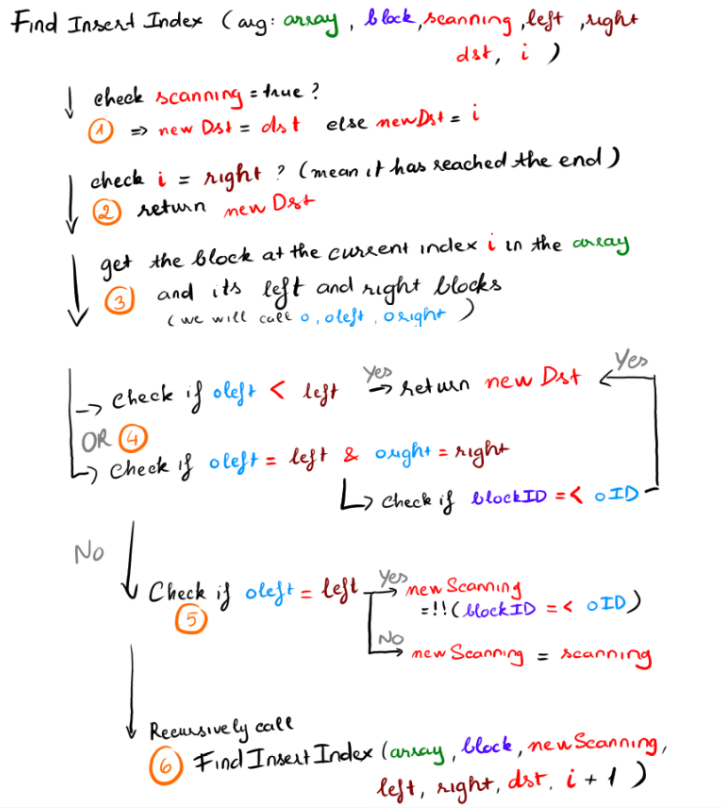 Find Insert Index (arg: array, block, scanning, left, right
dst, i )
check scanning = true ?
① => new Dst = dst else newDst = i
check i = right ? (mean it has reached the end)
② return new Dst
get the block at the current index i in the array
③ and its left and right blocks
(we will call o, oleft, oright )
-> check if oleft < left Yes -> return new Dst Yes
OR ④
-> check if oleft = left & oright = right
-> check if blockID =< oID
No
Check if oleft = left Yes new Scanning
⑤ =!!(blockID =< oID)
No new Scanning = scanning
Recursively call
⑥ Find Insert Index (array, block, new Scanning,
left, right, dst, i + 1 )